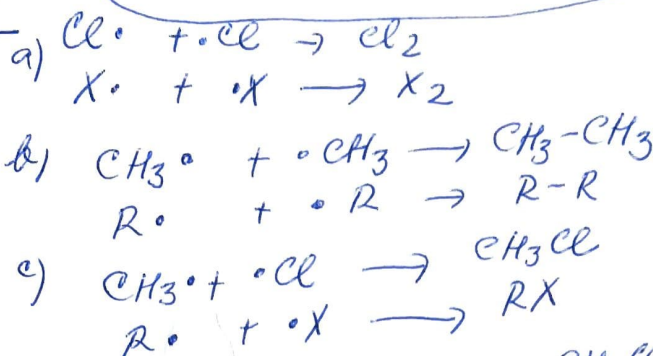 a) Cl• + •Cl → Cl2
X• + •X → X2
b) CH3• + •CH3 → CH3-CH3
R• + •R → R-R
c) CH3• + •Cl → CH3Cl
R• + •X → RX